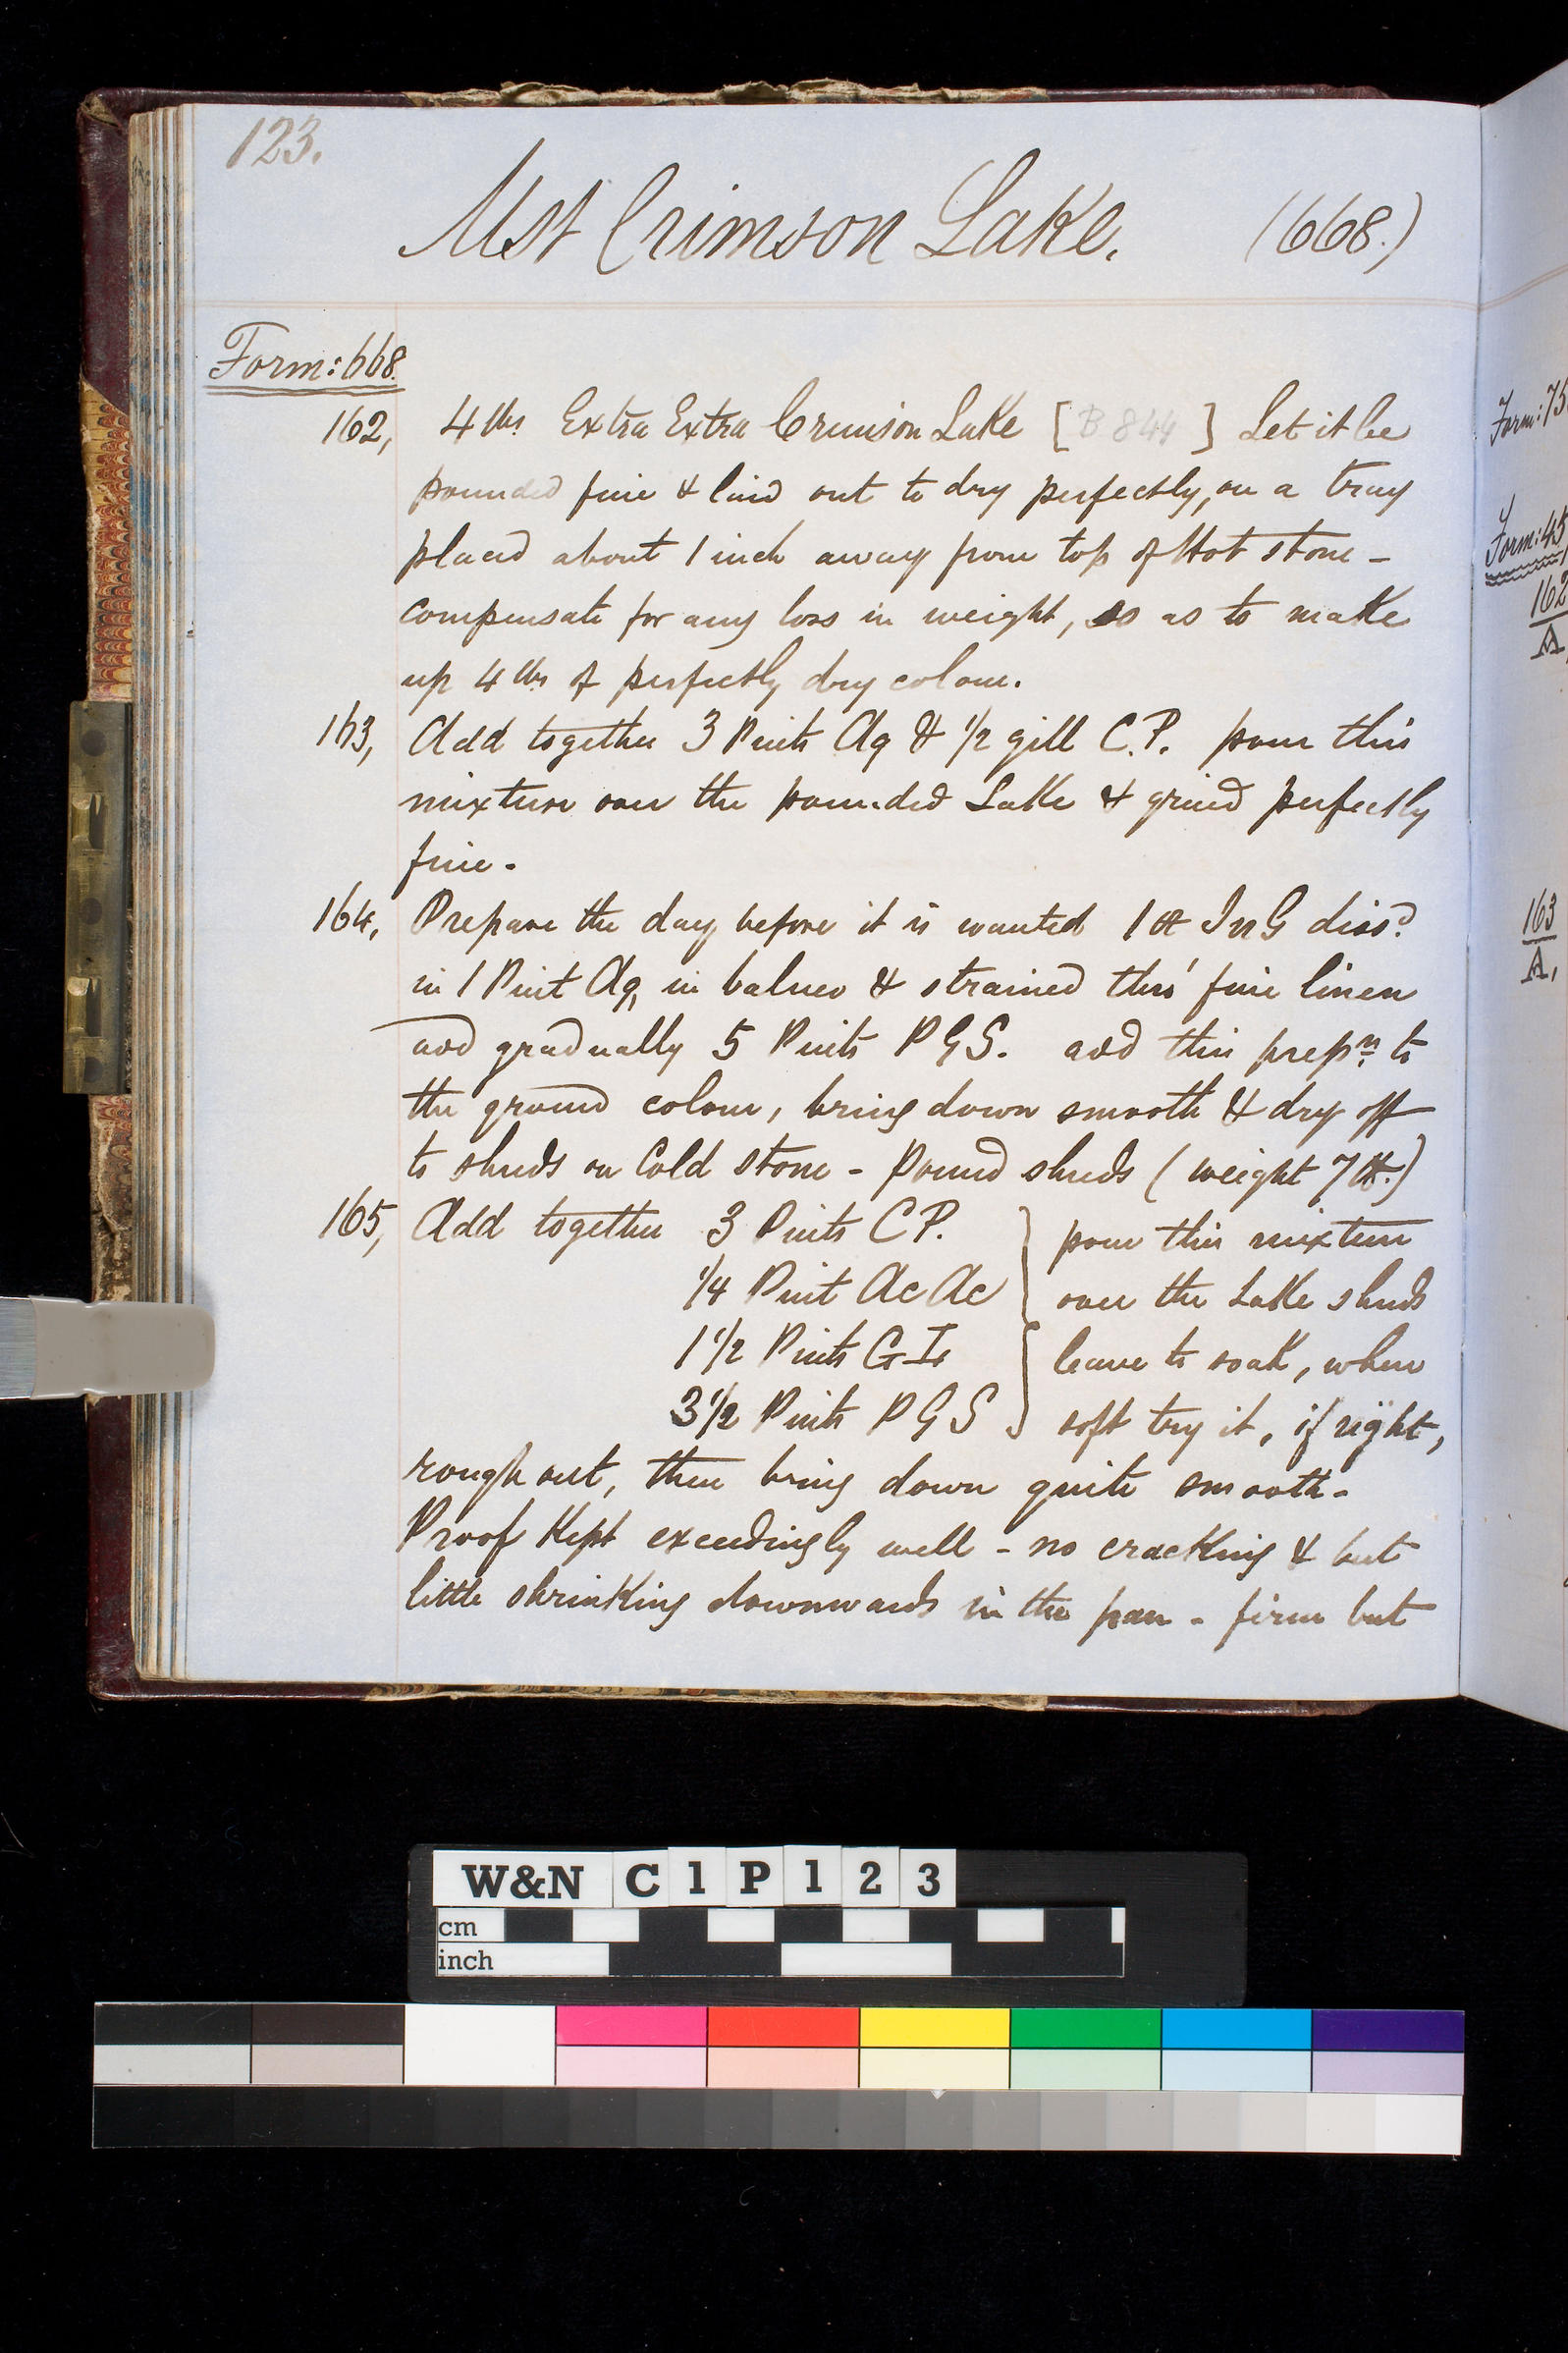 123.
Mst Crimson Lake. (668.)
Form: 668.
162, 4 lbs Extra Extra Crimson Lake [B 844] Let it be
pounded fine & laid out to dry perfectly, on a tray
placed about 1 inch away from top of Hot stone -
compensate for any loss in weight, so as to make
up 4 lbs of perfectly dry colour.
163, Add together 3 Pints Aq & 1/2 gill C.P. pour this
mixture over the pounded Lake & grind perfectly
fine -
164, Prepare the day before it is wanted 1 lb InG dissd
in 1 Pint Aq, in balneo & strained thro' fine linen
add gradually 5 Pints PGS. add this prepn to
the ground colour, bring down smooth & dry off
to shreds on Cold stone - Pound shreds (weight 7 lb.)
165, Add together 3 Pints CP. } pour this mixture
1/4 Pint AcAc over the Lake shreds
1 1/2 Pints GIs leave to soak, when
3 1/2 Pints PGS } soft try it, if right,
rough out, then bring down quite smooth -
Proof Kept exceedingly well - no cracking & but
little shrinking downwards in the pan - firm but
Form: 75
Form: 45
162
A
163
A,
W&N C1P123
cm
inch